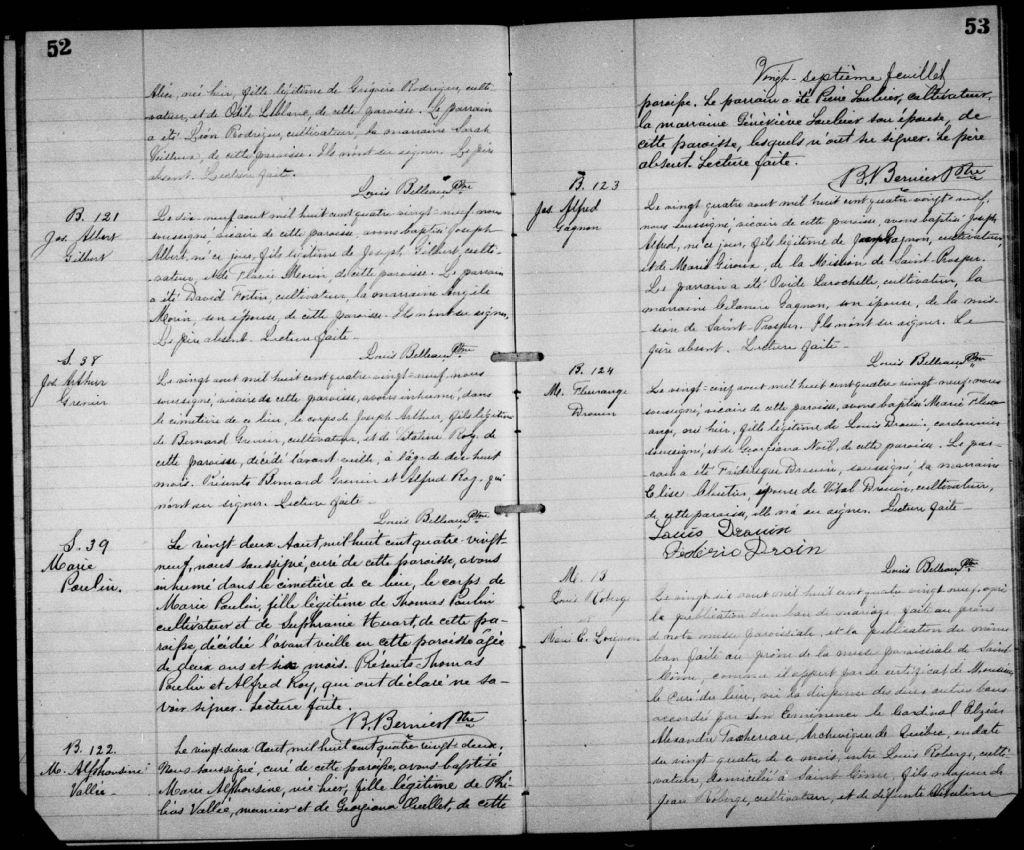 52
Alice, née hier, fille légitime de Grégoire Rodrigue, culti-
vateur, et de Odile Leblanc, de cette paroisse. Le parrain
a été Léon Rodrigue, cultivateur, la marraine Sarah
de cette paroisse. Ils n'ont su signer. Le père
absent. Lecture faite.
Louis Belleau, Ptre
B. 121
Jos. Albert
Gilbert
Le dix-neuf aout mil huit cent quatre-vingt-neuf nous
soussigné, vicaire de cette paroisse, avons baptisé Joseph
Albert, né ce jour, fils légitime de Joseph Gilbert, culti-
vateur, et de Flavie Morin, de cette paroisse. Le parrain
a été David Fortin, cultivateur, la marraine Angèle
Morin, son épouse, de cette paroisse. Ils n'ont su signer.
Le père absent. Lecture faite.
Louis Belleau, Ptre
S. 38
Jos Arthur
Grenier
Le vingt aout mil huit cent quatre-vingt-neuf, nous
soussigné, vicaire de cette paroisse, avons inhumé, dans
le cimetière de ce lieu, le corps de Joseph Arthur, fils légitime
de Bernard Grenier, cultivateur, et de Vitaline Roy, de
cette paroisse, décédé l'avant veille, à l'âge de dix huit
mois. Présents Bernard Grenier et Alfred Roy, qui
n'ont su signer. Lecture faite.
Louis Belleau, Ptre
S. 39
Marie
Poulin.
Le vingt deux Aout, mil huit cent quatre-vingt-
neuf, nous soussigné, curé de cette paroisse, avons
inhumé dans le cimetière de ce lieu, le corps de
Marie Poulin, fille légitime de Thomas Poulin
cultivateur et de Suphranie Huart, de cette pa-
roisse, décédée l'avant veille en cette paroisse âgée
de deux ans et six mois. Présents Thomas
Poulin et Alfred Roy, qui ont déclaré ne sa-
voir signer. Lecture faite.
B. Bernier Ptre
B. 122.
M. Alphonsine
Vallée
Le vingt-deux Aout, mil huit cent quatre vingt-deux,
Nous soussigné, curé de cette paroisse, avons baptisé
Marie Alphonsine, née hier, fille légitime de Phi-
lias Vallée, meunier et de Georgiana Ouellet, de cette
53
Vingt-septième feuillet
paroisse. Le parrain a été Pierre Loubier, cultivateur,
la marraine Généviève Loubier son épouse, de
cette paroisse, lesquels n'ont su signer. Le père
absent. Lecture faite.
B. Bernier Ptre
B. 123
Jos. Alfred
Gagnon
Le vingt quatre aout mil huit cent quatre-vingt neuf,
nous soussigné, vicaire de cette paroisse, avons baptisé Joseph
Alfred, né ce jour, fils légitime de Gagnon, cultivateur,
et de Marie Giroux, de la Mission de Saint-Prosper.
Le parrain a été Ovide Larochelle, cultivateur, la
marraine Gagnon, son épouse, de la mis-
sion de Saint-Prosper. Ils n'ont su signer. Le
père absent. Lecture faite-
Louis Belleau, Ptre
B. 124
M. Fleurange
Drouin
Le vingt-cinq aout mil huit cent quatre-vingt-neuf, nous
soussigné, vicaire de cette paroisse, avons baptisé Marie Fleur-
ange, née hier, fille légitime de Louis Drouin, cordonnier
soussigné, et de Georgiana Noël, de cette paroisse. Le par-
rain a été Frédérique Drouin, soussigné, la marraine
Elise Cloutier, épouse de Vital Drouin, cultivateur,
de cette paroisse, elle n'a su signer. Lecture faite-
Louis Drouin
Federic Droin
Louis Belleau Ptre
M. 13
Louis Roberge
et
Marie C.
Le vingt six aout mil huit cent quatre vingt neuf, après
la publication d'un ban de mariage, faite au prône
de notre messe paroissiale, et la publication du même
ban faite au prône de la messe paroissiale de Saint
Côme, comme il appert par le certificat de Monsieur
le Curé du lieu, vu la dispense des deux autres bans
accordée par Son Eminence le Cardinal Elzéar
Alexandre Taschereau, Archevêque de Québec, en date
du vingt quatre de ce mois, entre Louis Roberge, culti-
vateur, domicilié à Saint Côme, fils majeur de
Jean Roberge, cultivateur, et de défunte Vitaline